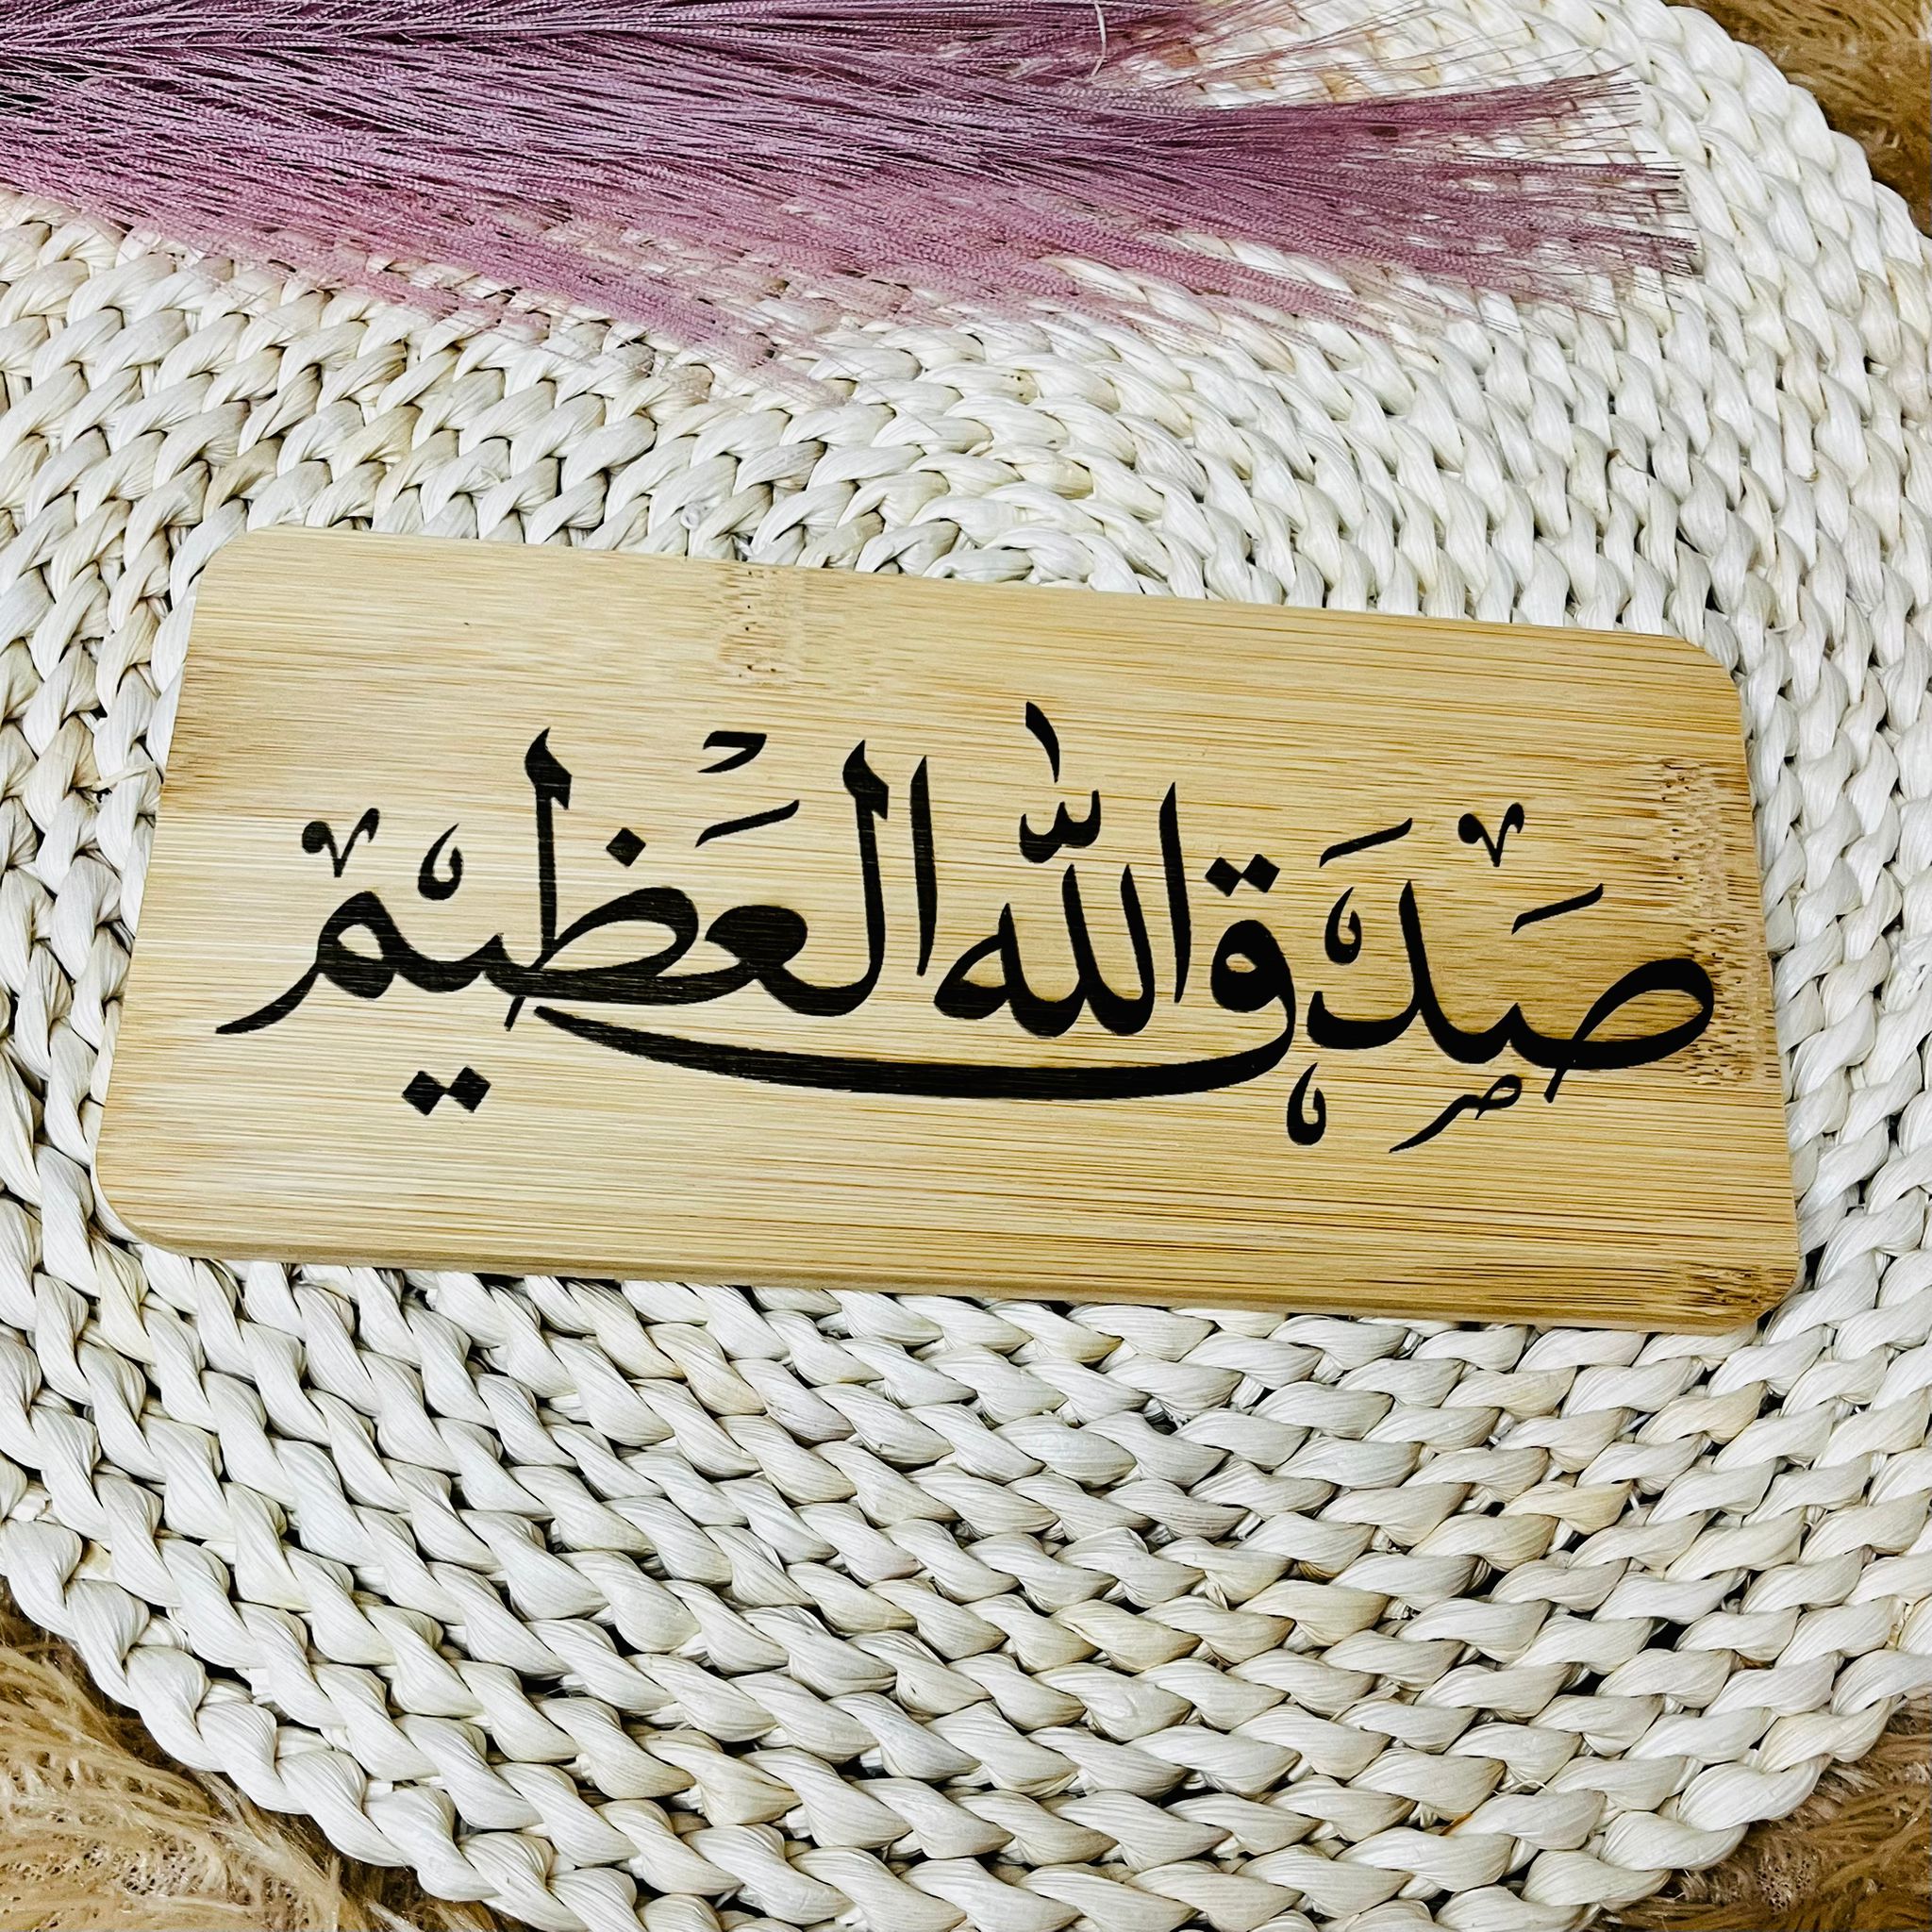 صَدَقَ اللّٰه العَظيم